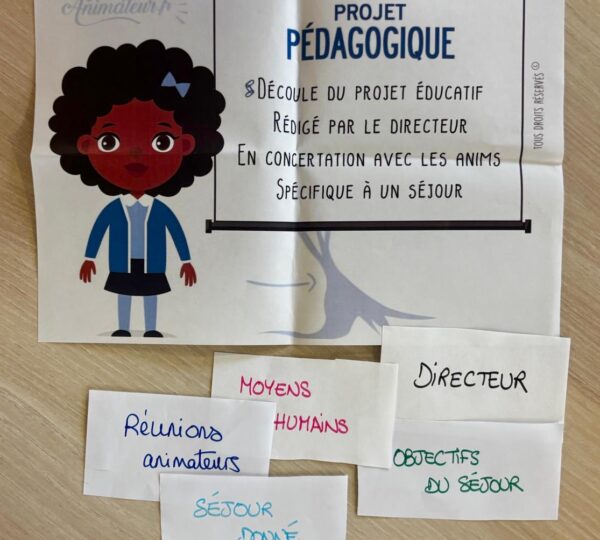 Animateur.fr
PROJET
PÉDAGOGIQUE
DÉCOULE DU PROJET ÉDUCATIF
RÉDIGÉ PAR LE DIRECTEUR
EN CONCERTATION AVEC LES ANIMS
SPÉCIFIQUE À UN SÉJOUR
TOUS DROITS RÉSERVÉS ©
DIRECTEUR
MOYENS
HUMAINS
Réunions
animateurs
OBJECTIFS
DU SÉJOUR
SÉJOUR
DONNÉ